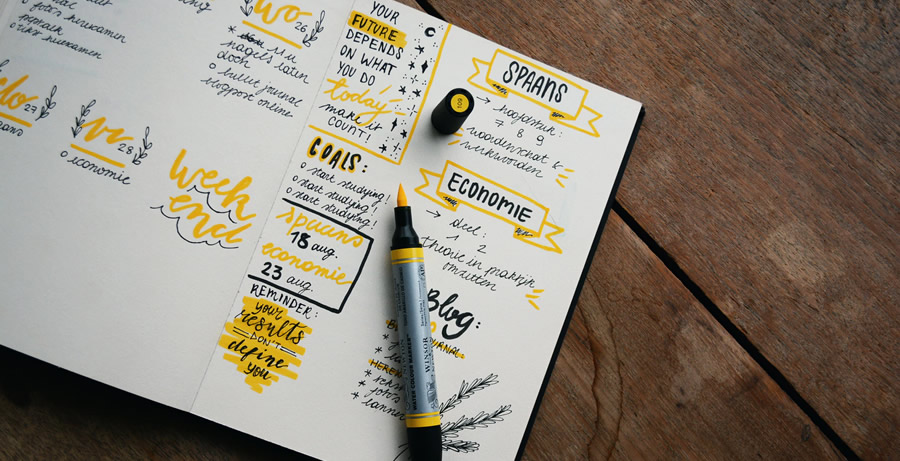 foto's herexamen
opmaak
visir herexamen
wo 26
nagels laten
doen
bullet journal
blogpost online
do 27
vr 28
economie
week
end
YOUR
FUTURE
DEPENDS
ON WHAT
YOU DO
today
make it
COUNT!
GOALS:
start studying!
start studying!
start studying!
spaans
18 aug.
economie
23 aug.
REMINDER:
your
results
DON'T
define
you
SPAANS
→ hoofdstuk:
7 8 9
woordenschat &
werkwoorden
ECONOMIE
→ deel:
1 2
theorie in praktijk
omzetten
Blog:
foto's
WATER COLOUR MARKER
WINSOR